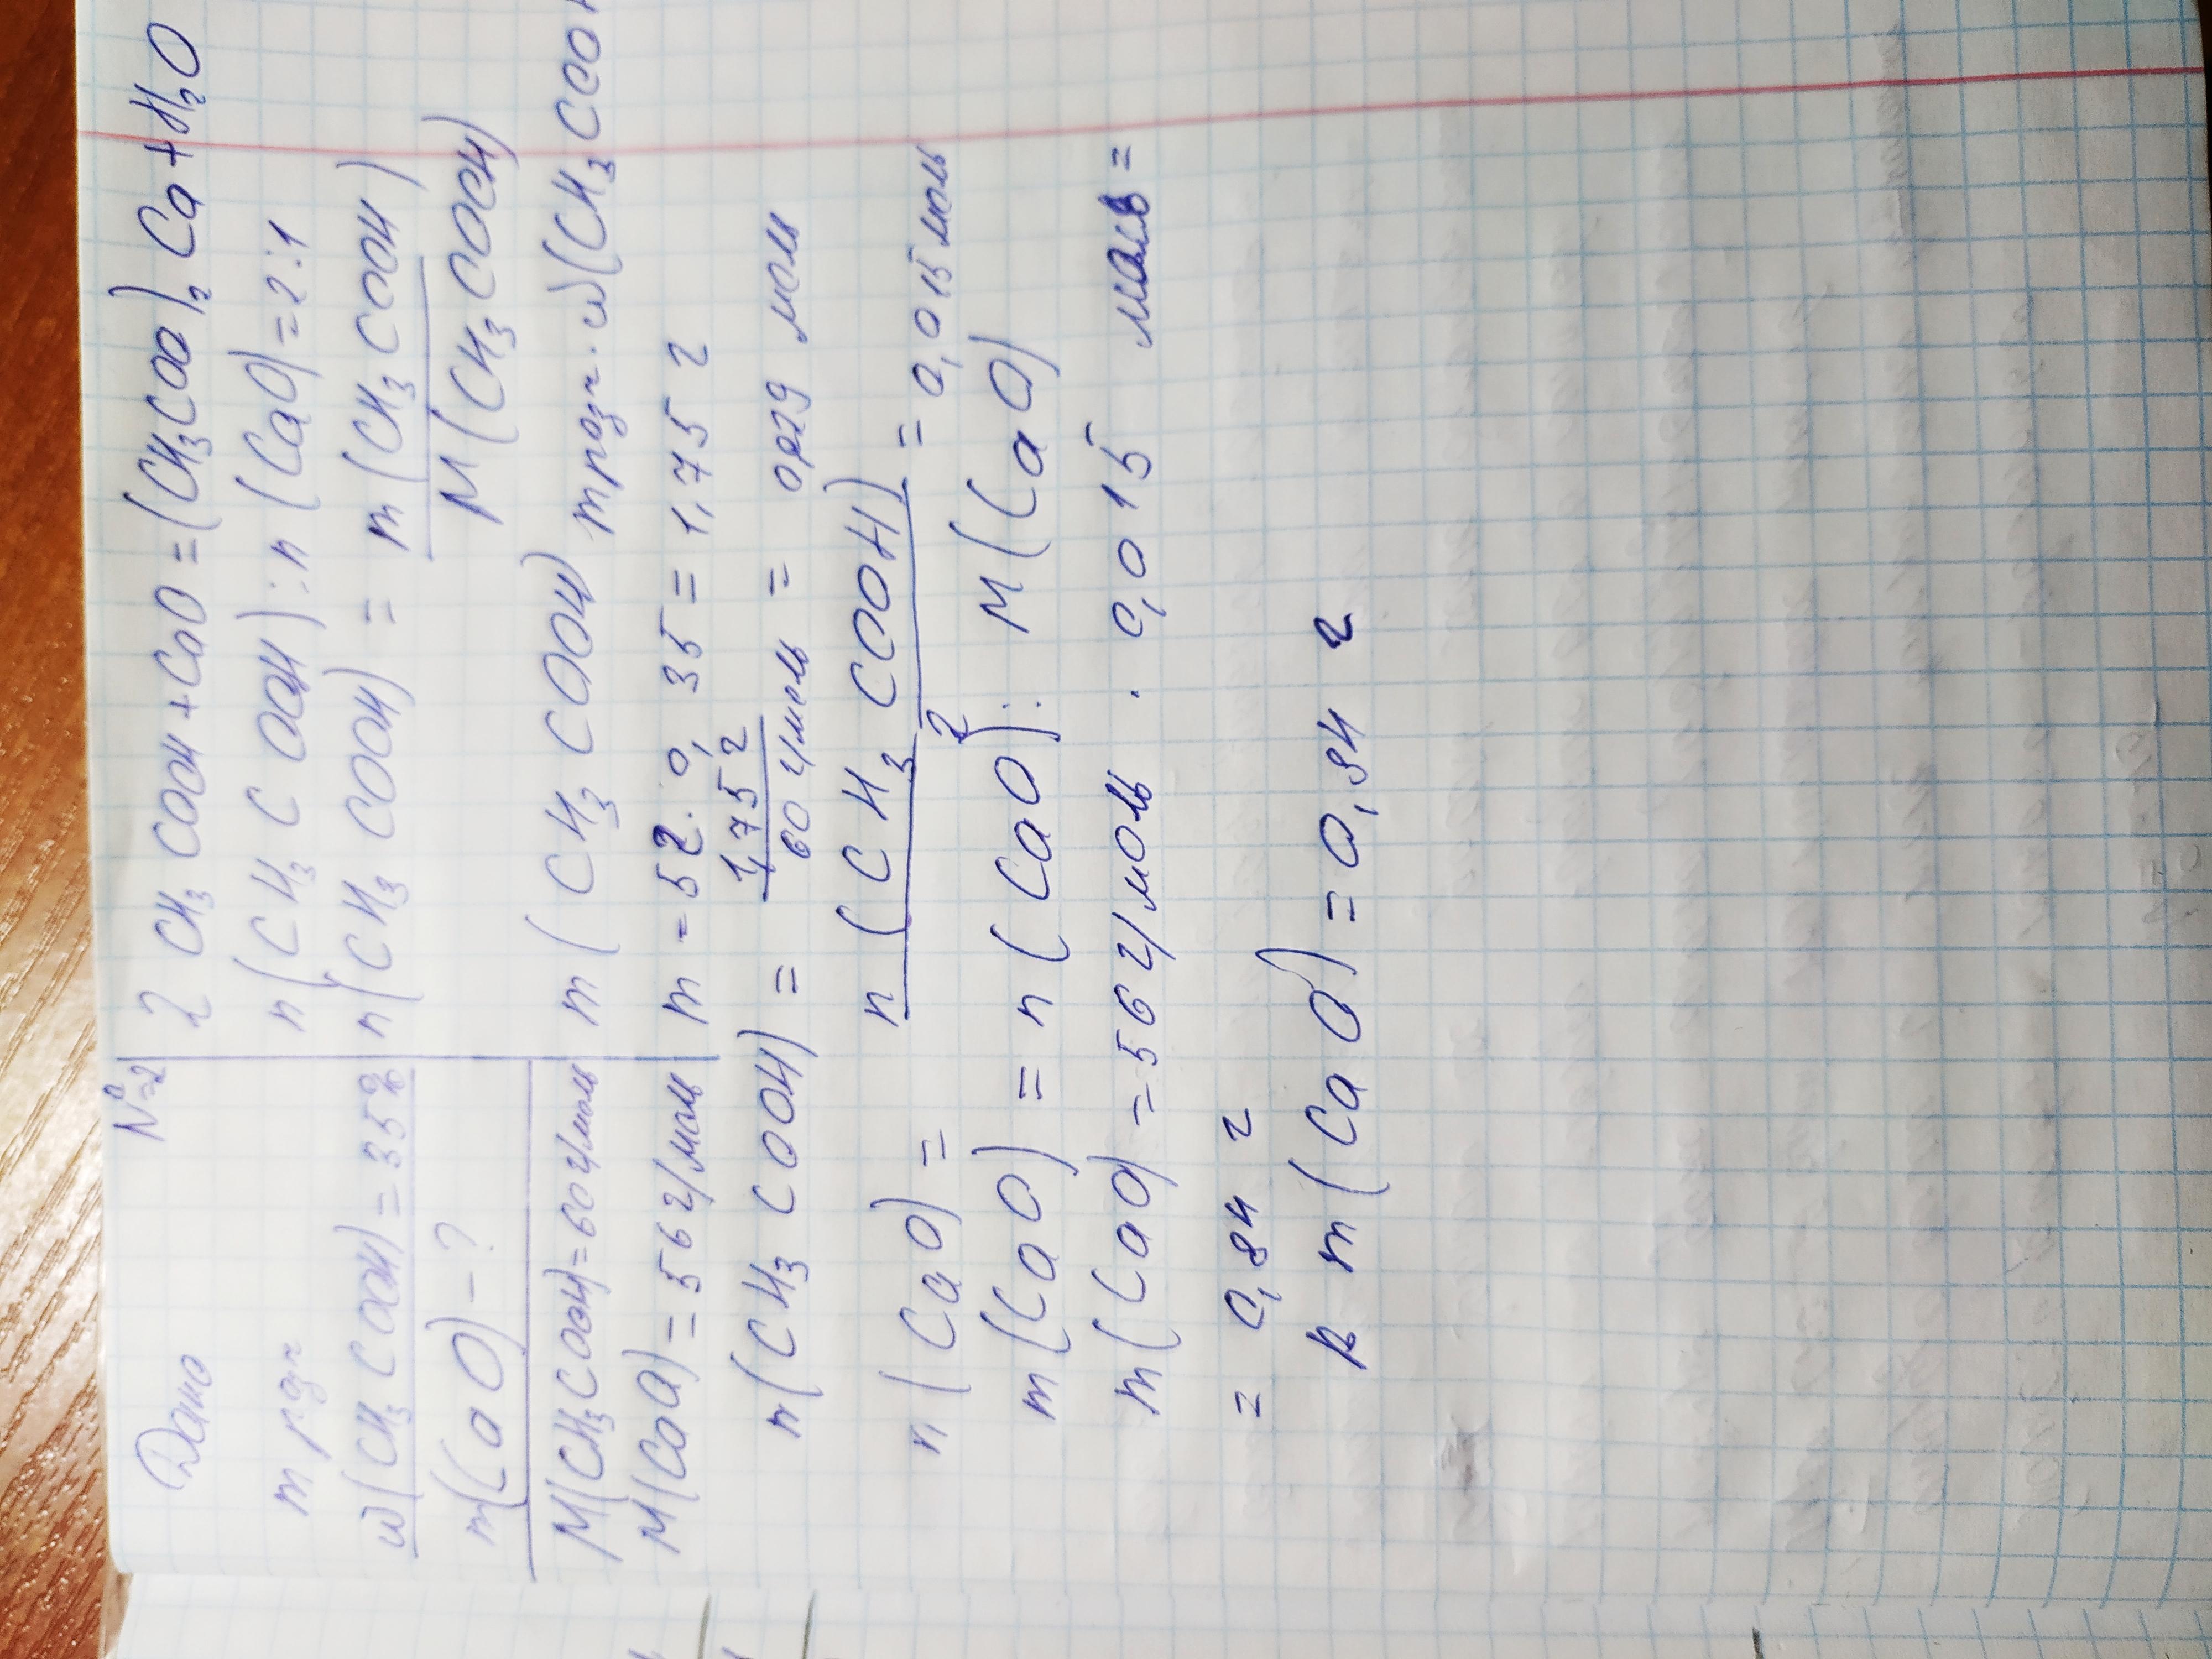 №2
Дано
m розч
w(CH₃COOH)=35%
m(CaO)-?
M(CH₃COOH)=60 г/моль
M(CaO)=56 г/моль
2 CH₃COOH+CaO=(CH₃COO)₂Ca+H₂O
n(CH₃COOH):n(CaO)=2:1
n(CH₃COOH) = m(CH₃COOH)
M(CH₃COOH)
m(CH₃COOH) m розч.·w(CH₃COOH
m=5г·0,35=1,75 г
n(CH₃COOH) = 1,75 г
60 г/моль = 0,029 моль
n(CaO) = n(CH₃COOH)
2 = 0,015 моль
m(CaO) = n(CaO)·M(CaO)
m(CaO)=56 г/моль · 0,015 моль =
= 0,84 г
m(CaO)=0,84 г